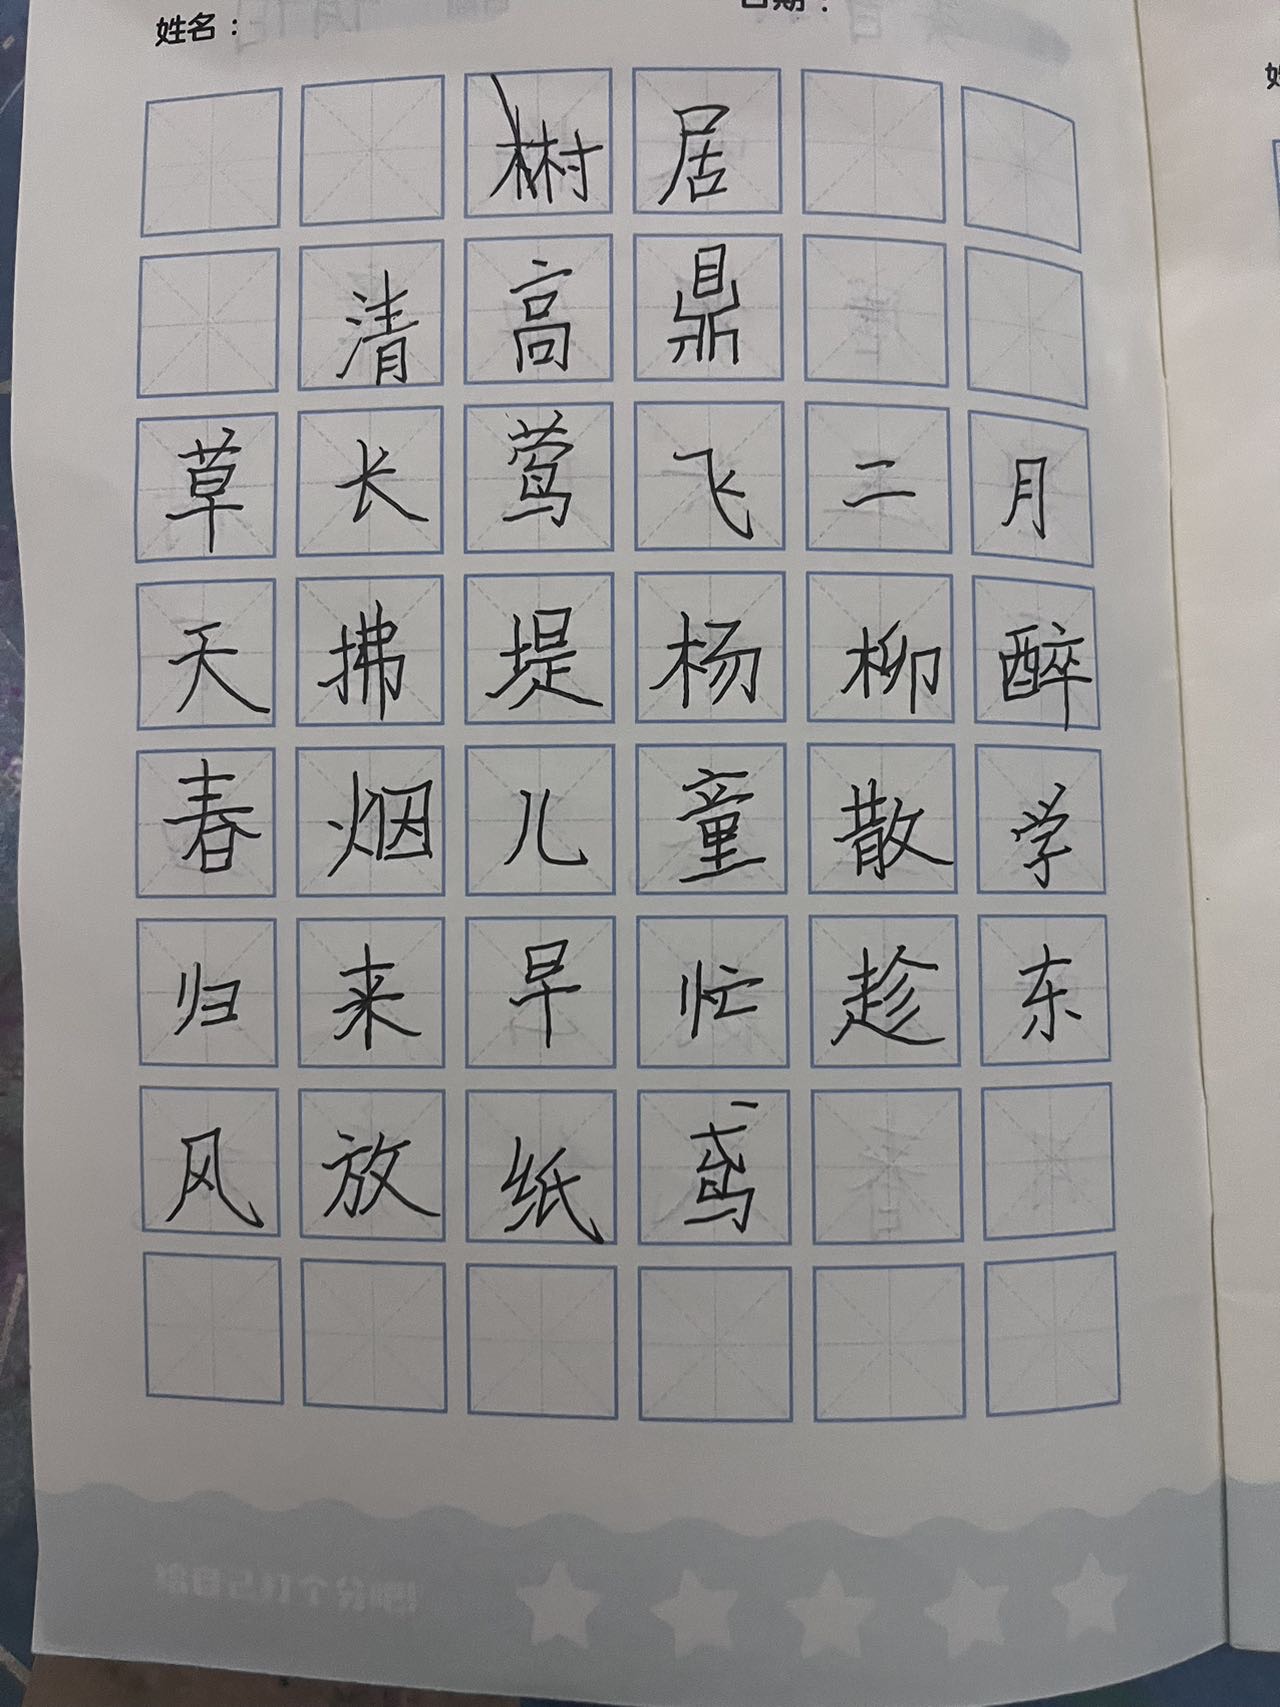 姓名：
日期：
村居
清高鼎
草长莺飞二月
天拂堤杨柳醉
春烟儿童散学
归来早忙趁东
风放纸鸢
给自己打个分吧!